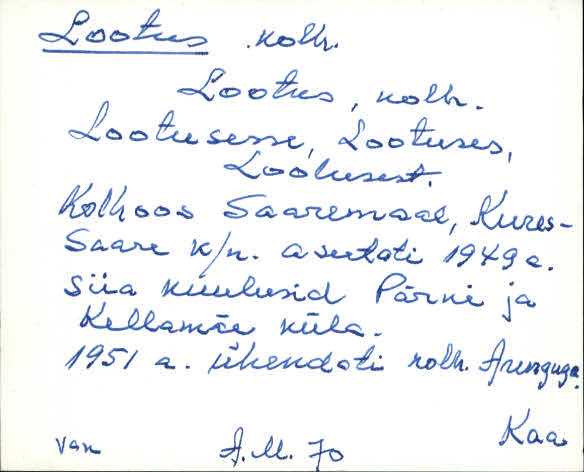 Lootus kolh.
Lootus, kolh.
Lootusesse, Lootuses,
Lootusest.
Kolhoos Saaremaal, Kures-
saare k/n. asutati 1949 a.
Siia kuulusid Pärni ja
Kellamäe küla.
1951 a. ühendati kolh. Arenguga.
Kaa
Van A.M. 70